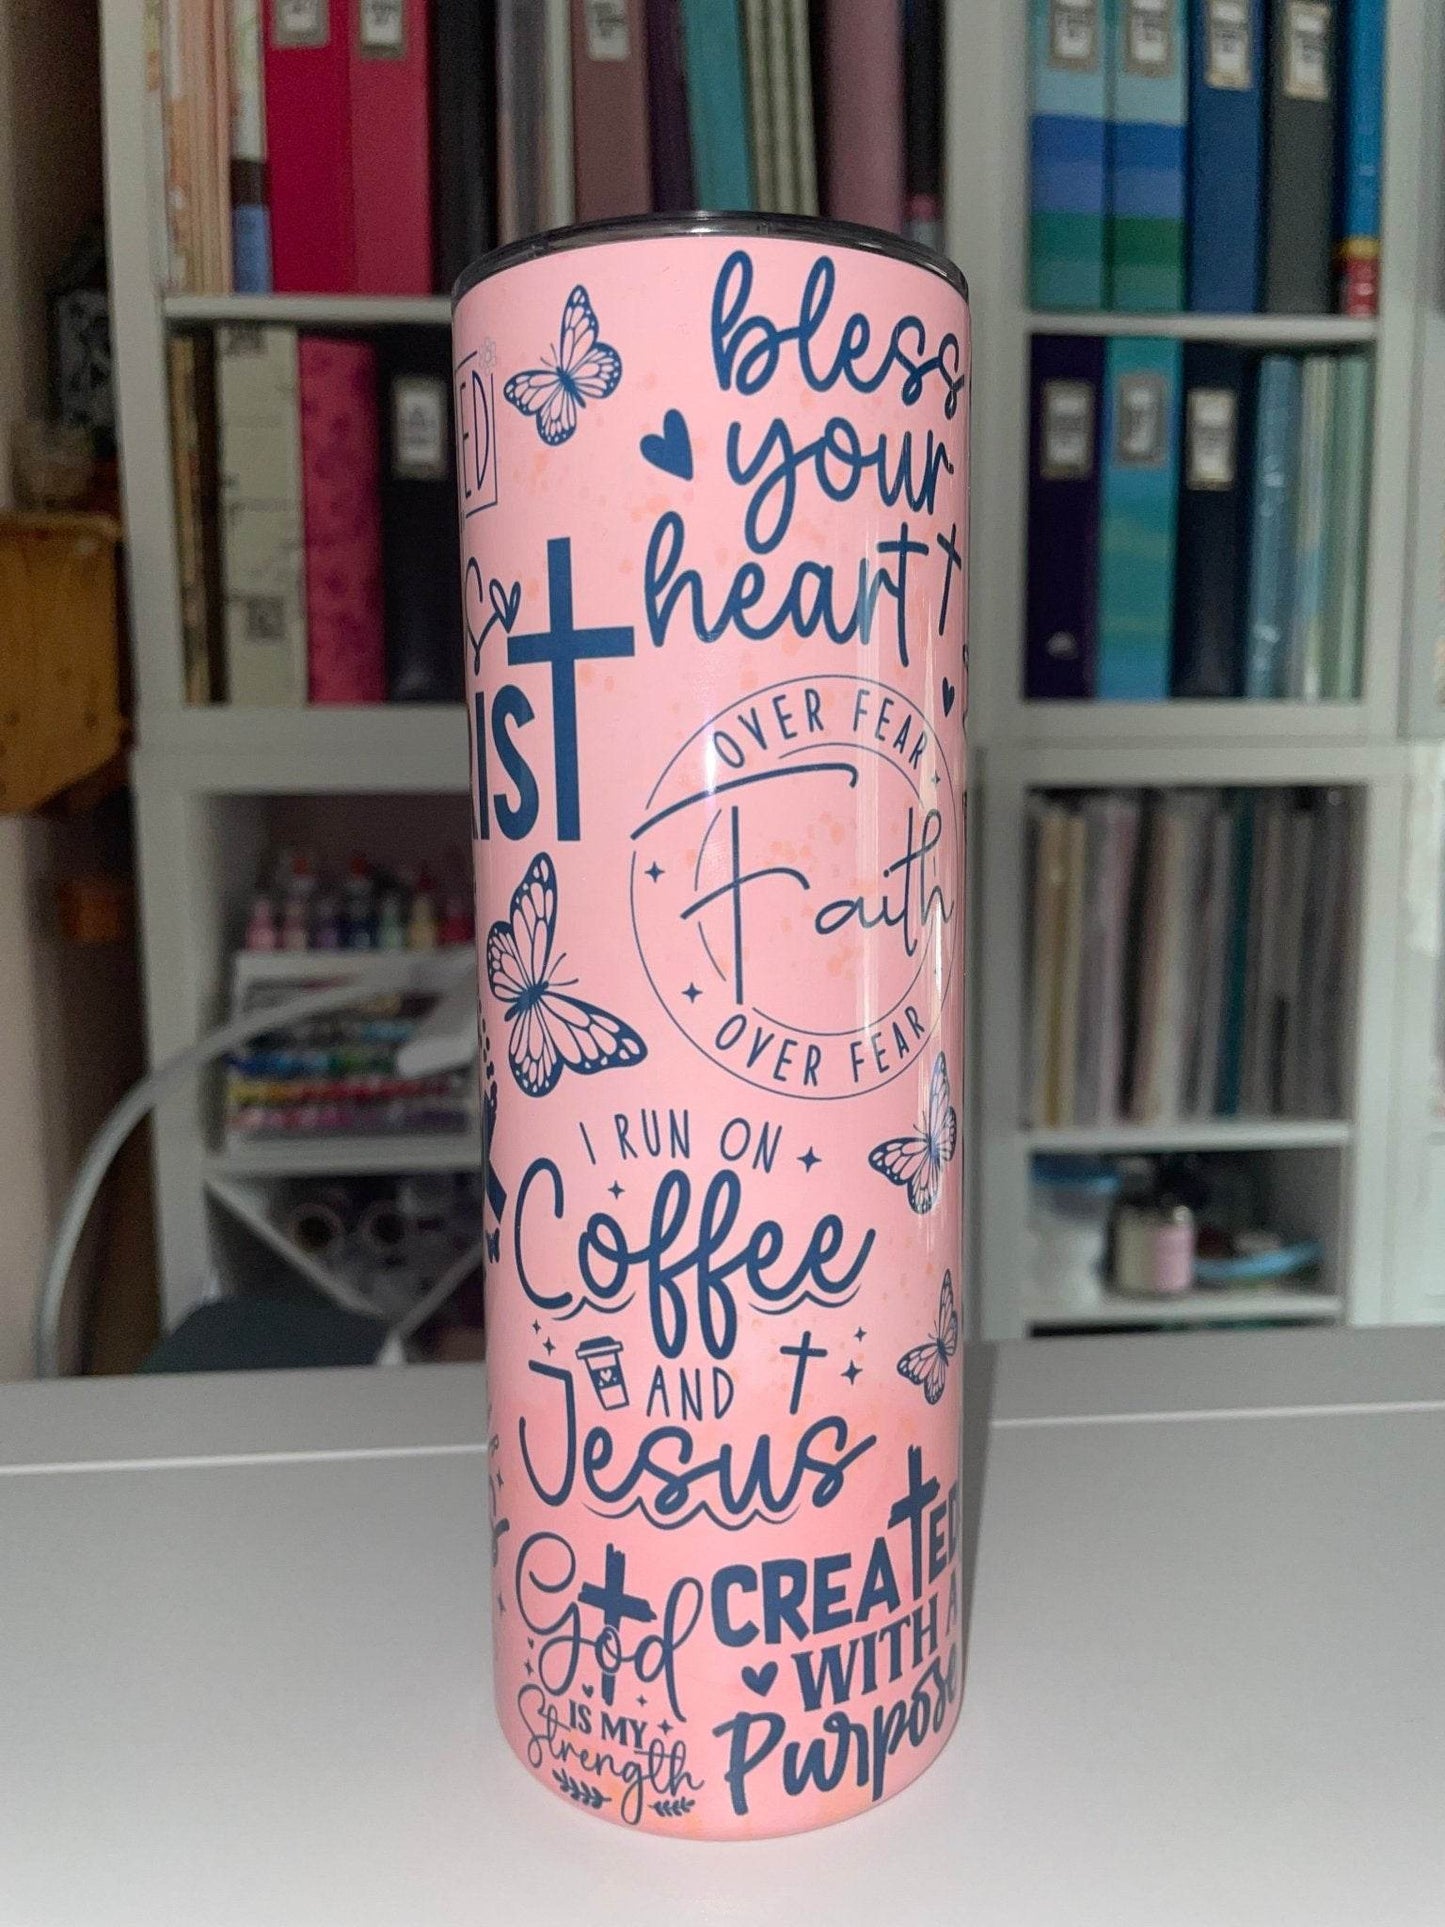 bless
your
heart
ED
IST
OVER FEAR
Faith
OVER FEAR
I RUN ON
Coffee
AND
Jesus
God
IS MY
Strength
CREATED
WITH A
Purpose